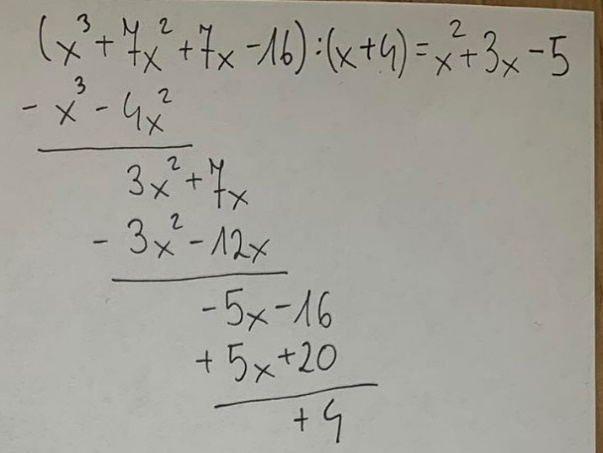 (x³ + 7x² + 7x - 16) : (x + 4) = x² + 3x - 5
- x³ - 4x²
3x² + 7x
- 3x² - 12x
- 5x - 16
+ 5x + 20
+ 4